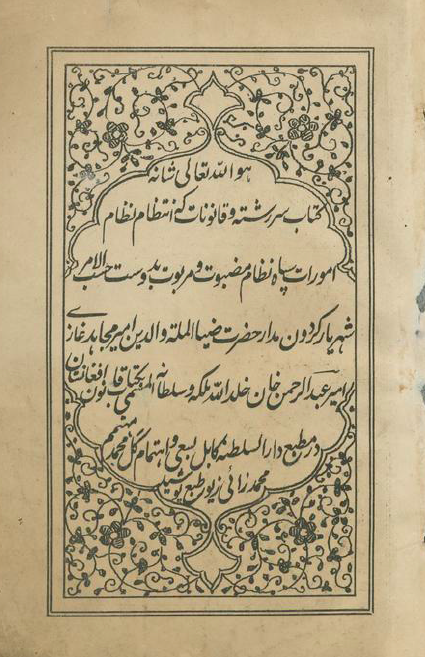 هو الله تعالی شانه
کتاب سررشته و قانونات که انتظام نظام
امورات سپاه نظام مضبوت و مربوت بدوست حسب الامر
شهریار کردون مدار حضرت ضیا الملة والدین امیر مجاهد غازی
امیر عبدالرحمن خان خلد الله ملکه و سلطانه المسمی بکتاب قانون افغانستان
در مطبع دار السلطنه کابل بسعی و اهتمام گل محمد مهتمم
محمد زائی زیور طبع پوشید